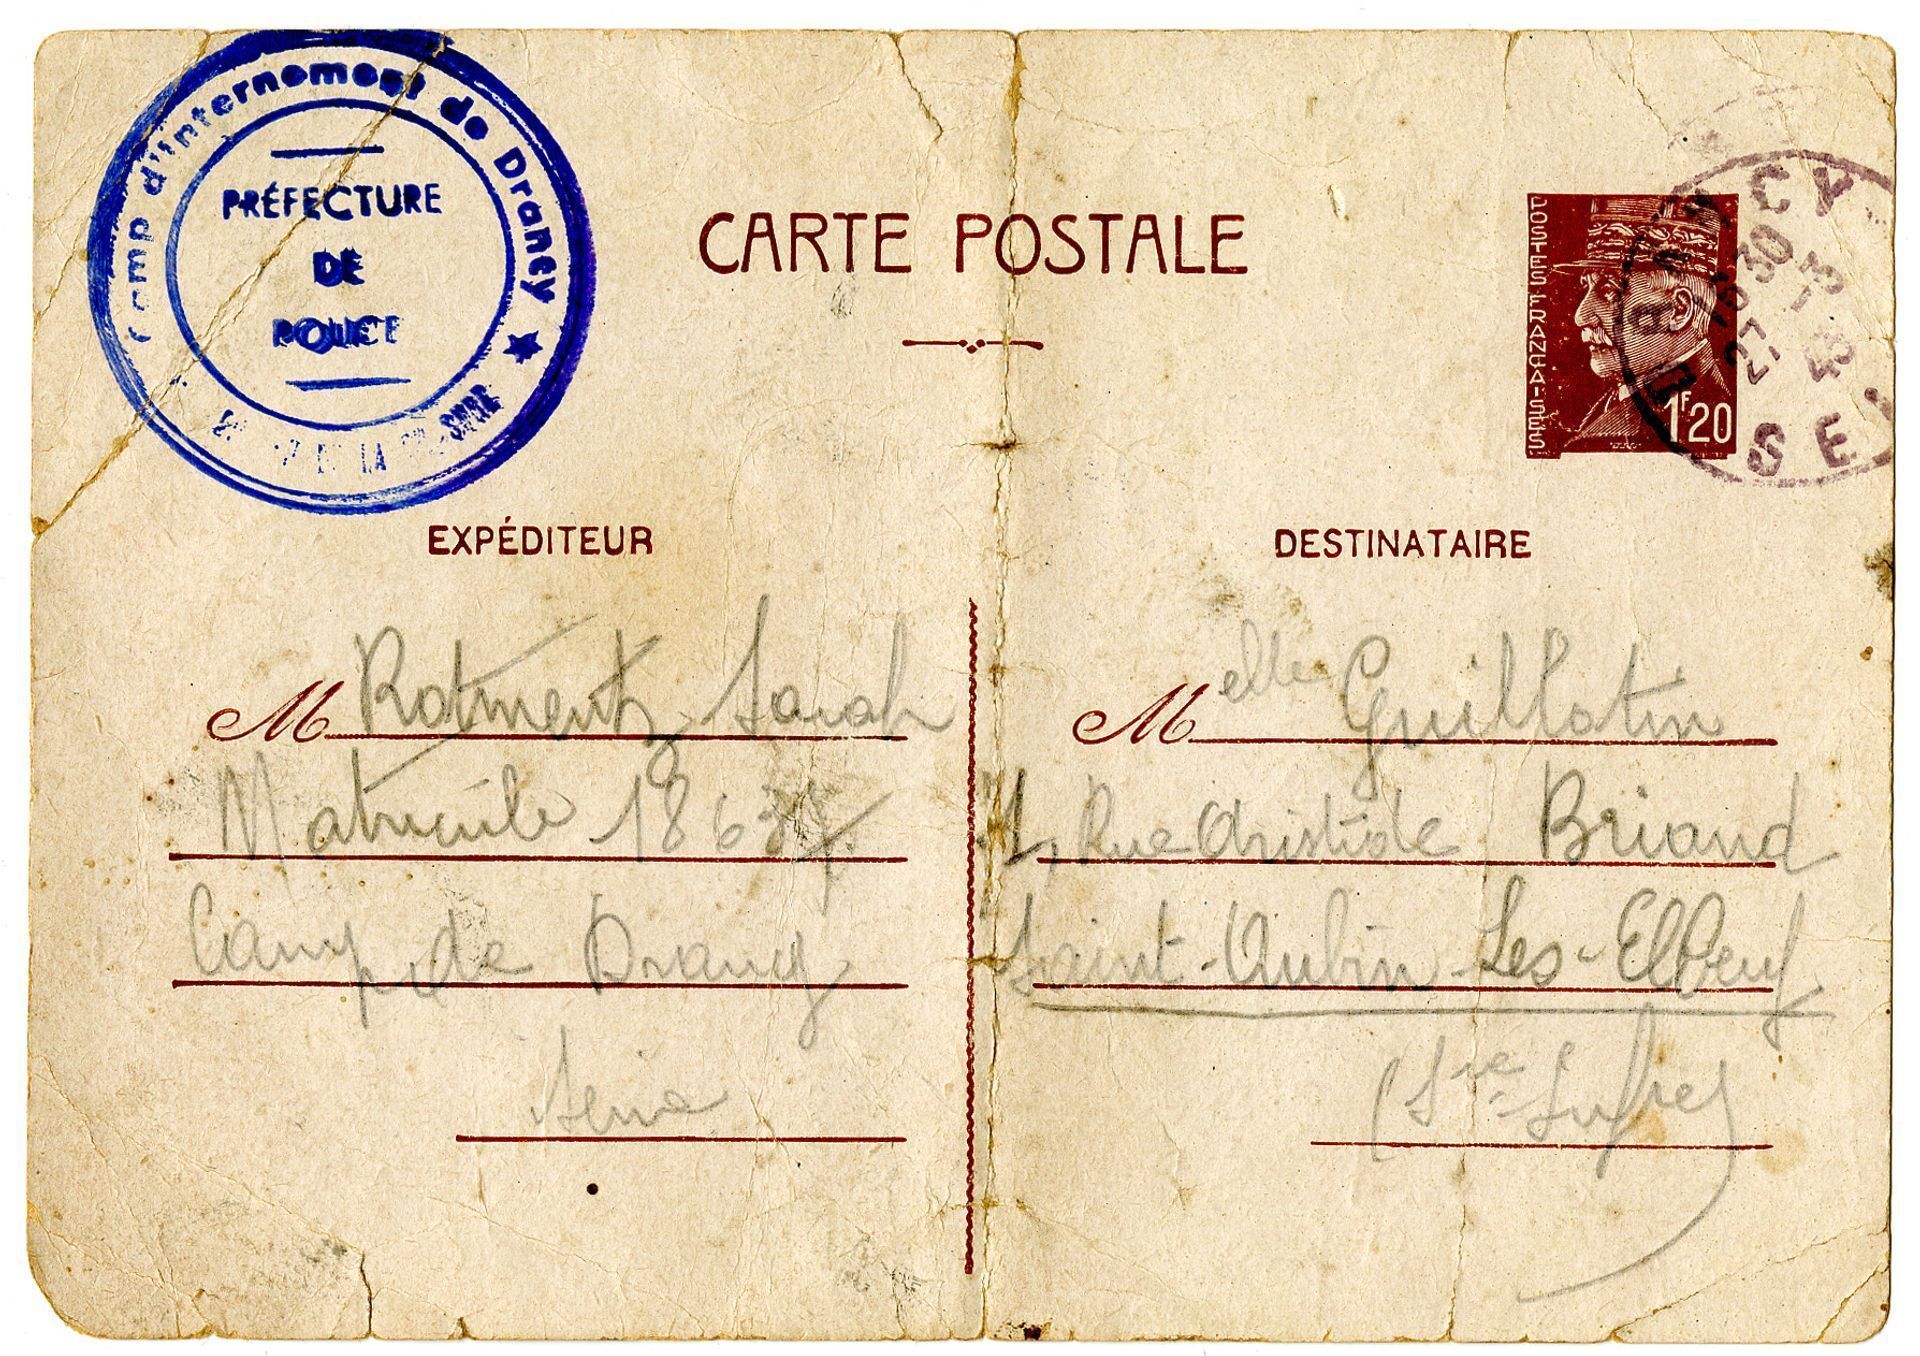 Camp d'internement de Drancy
PRÉFECTURE
DE
POLICE
DE LA
CARTE POSTALE
POSTES FRANÇAISES
1F20
DRANCY
30
27
43
SEI
EXPÉDITEUR
DESTINATAIRE
M Rotmentz Sarah
Matricule
Camp de Drancy
Seine
Melle Guillotin
Rue Aristide Briand
Saint-Aubin-Les-Elbeuf
(Sre-Infre)